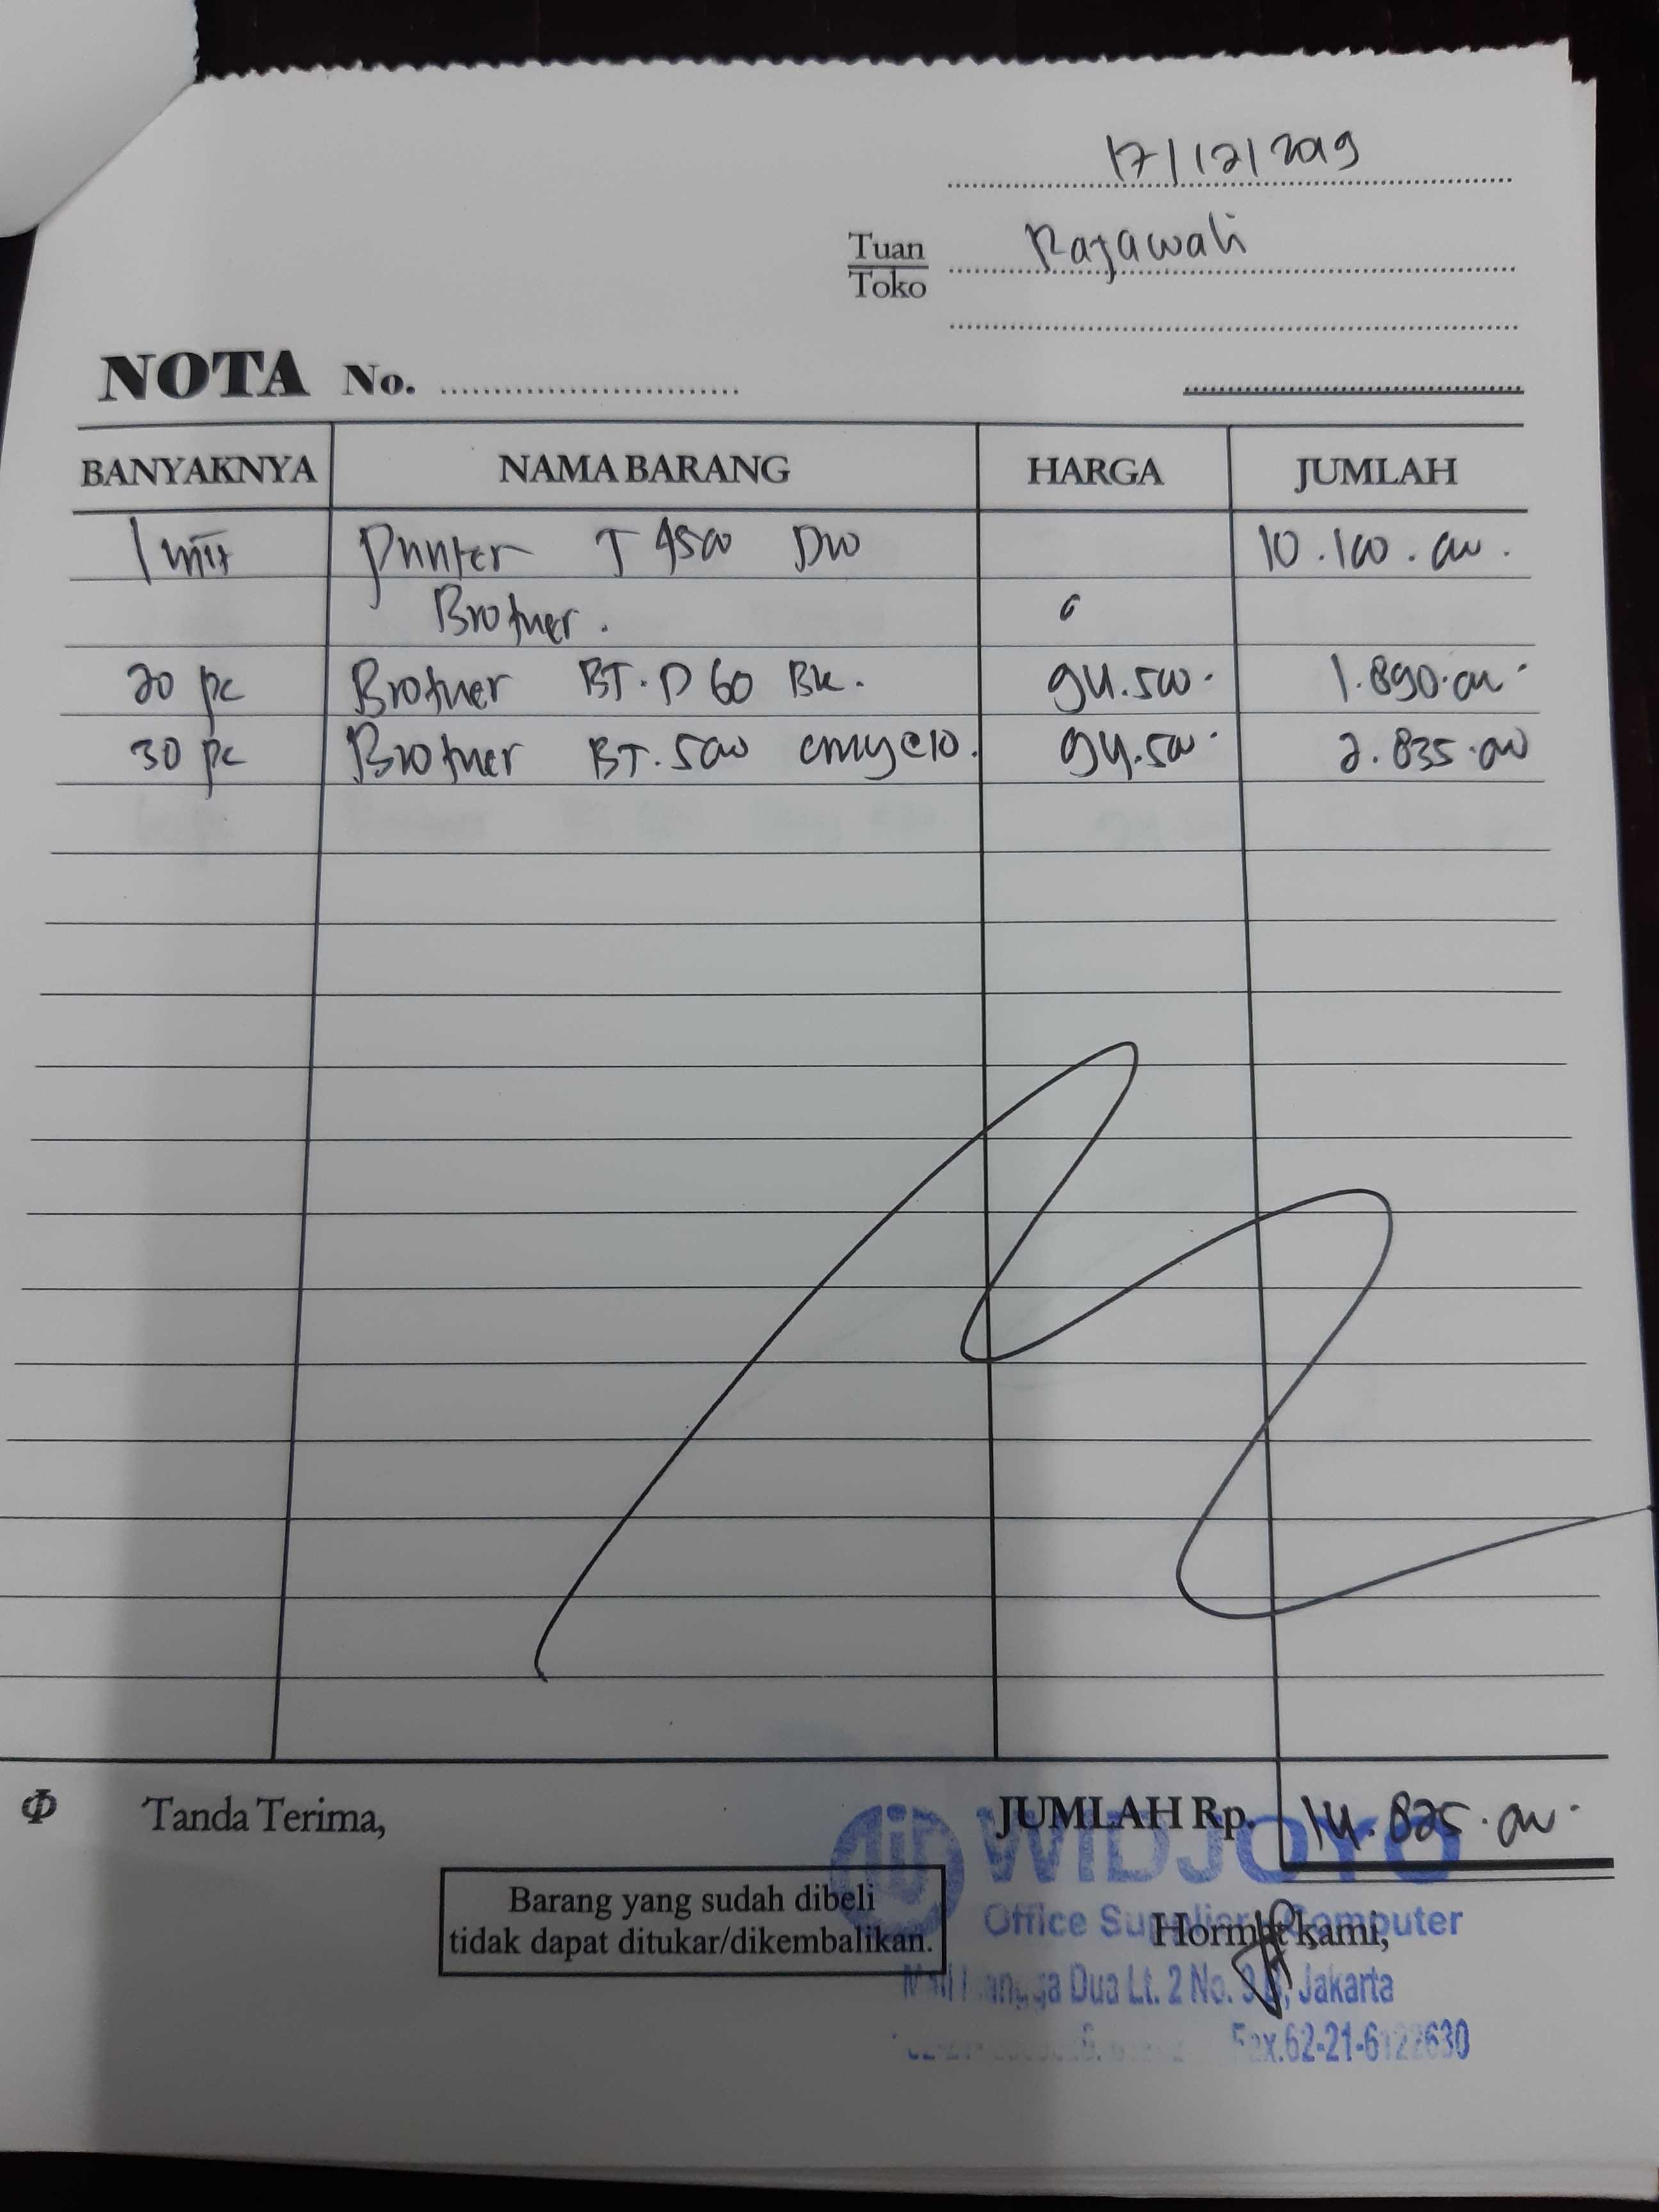 17/12/2019
Tuan Rajawali
Toko
NOTA No.
BANYAKNYA NAMA BARANG HARGA JUMLAH
1 unit Printer T 4500 DW 10.100.000.
Brother.
20 pc Brother BT.D60 Bk. 94.500. 1.890.000
30 pc Brother BT.5000 cmy@10. 94.500 2.835.000
Tanda Terima, JUMLAH Rp. 14.825.000
WIDJOYO
Barang yang sudah dibeli
tidak dapat ditukar/dikembalikan.
Office Supplier Computer
Hormat kami,
Dua Lt. 2 No. Jakarta